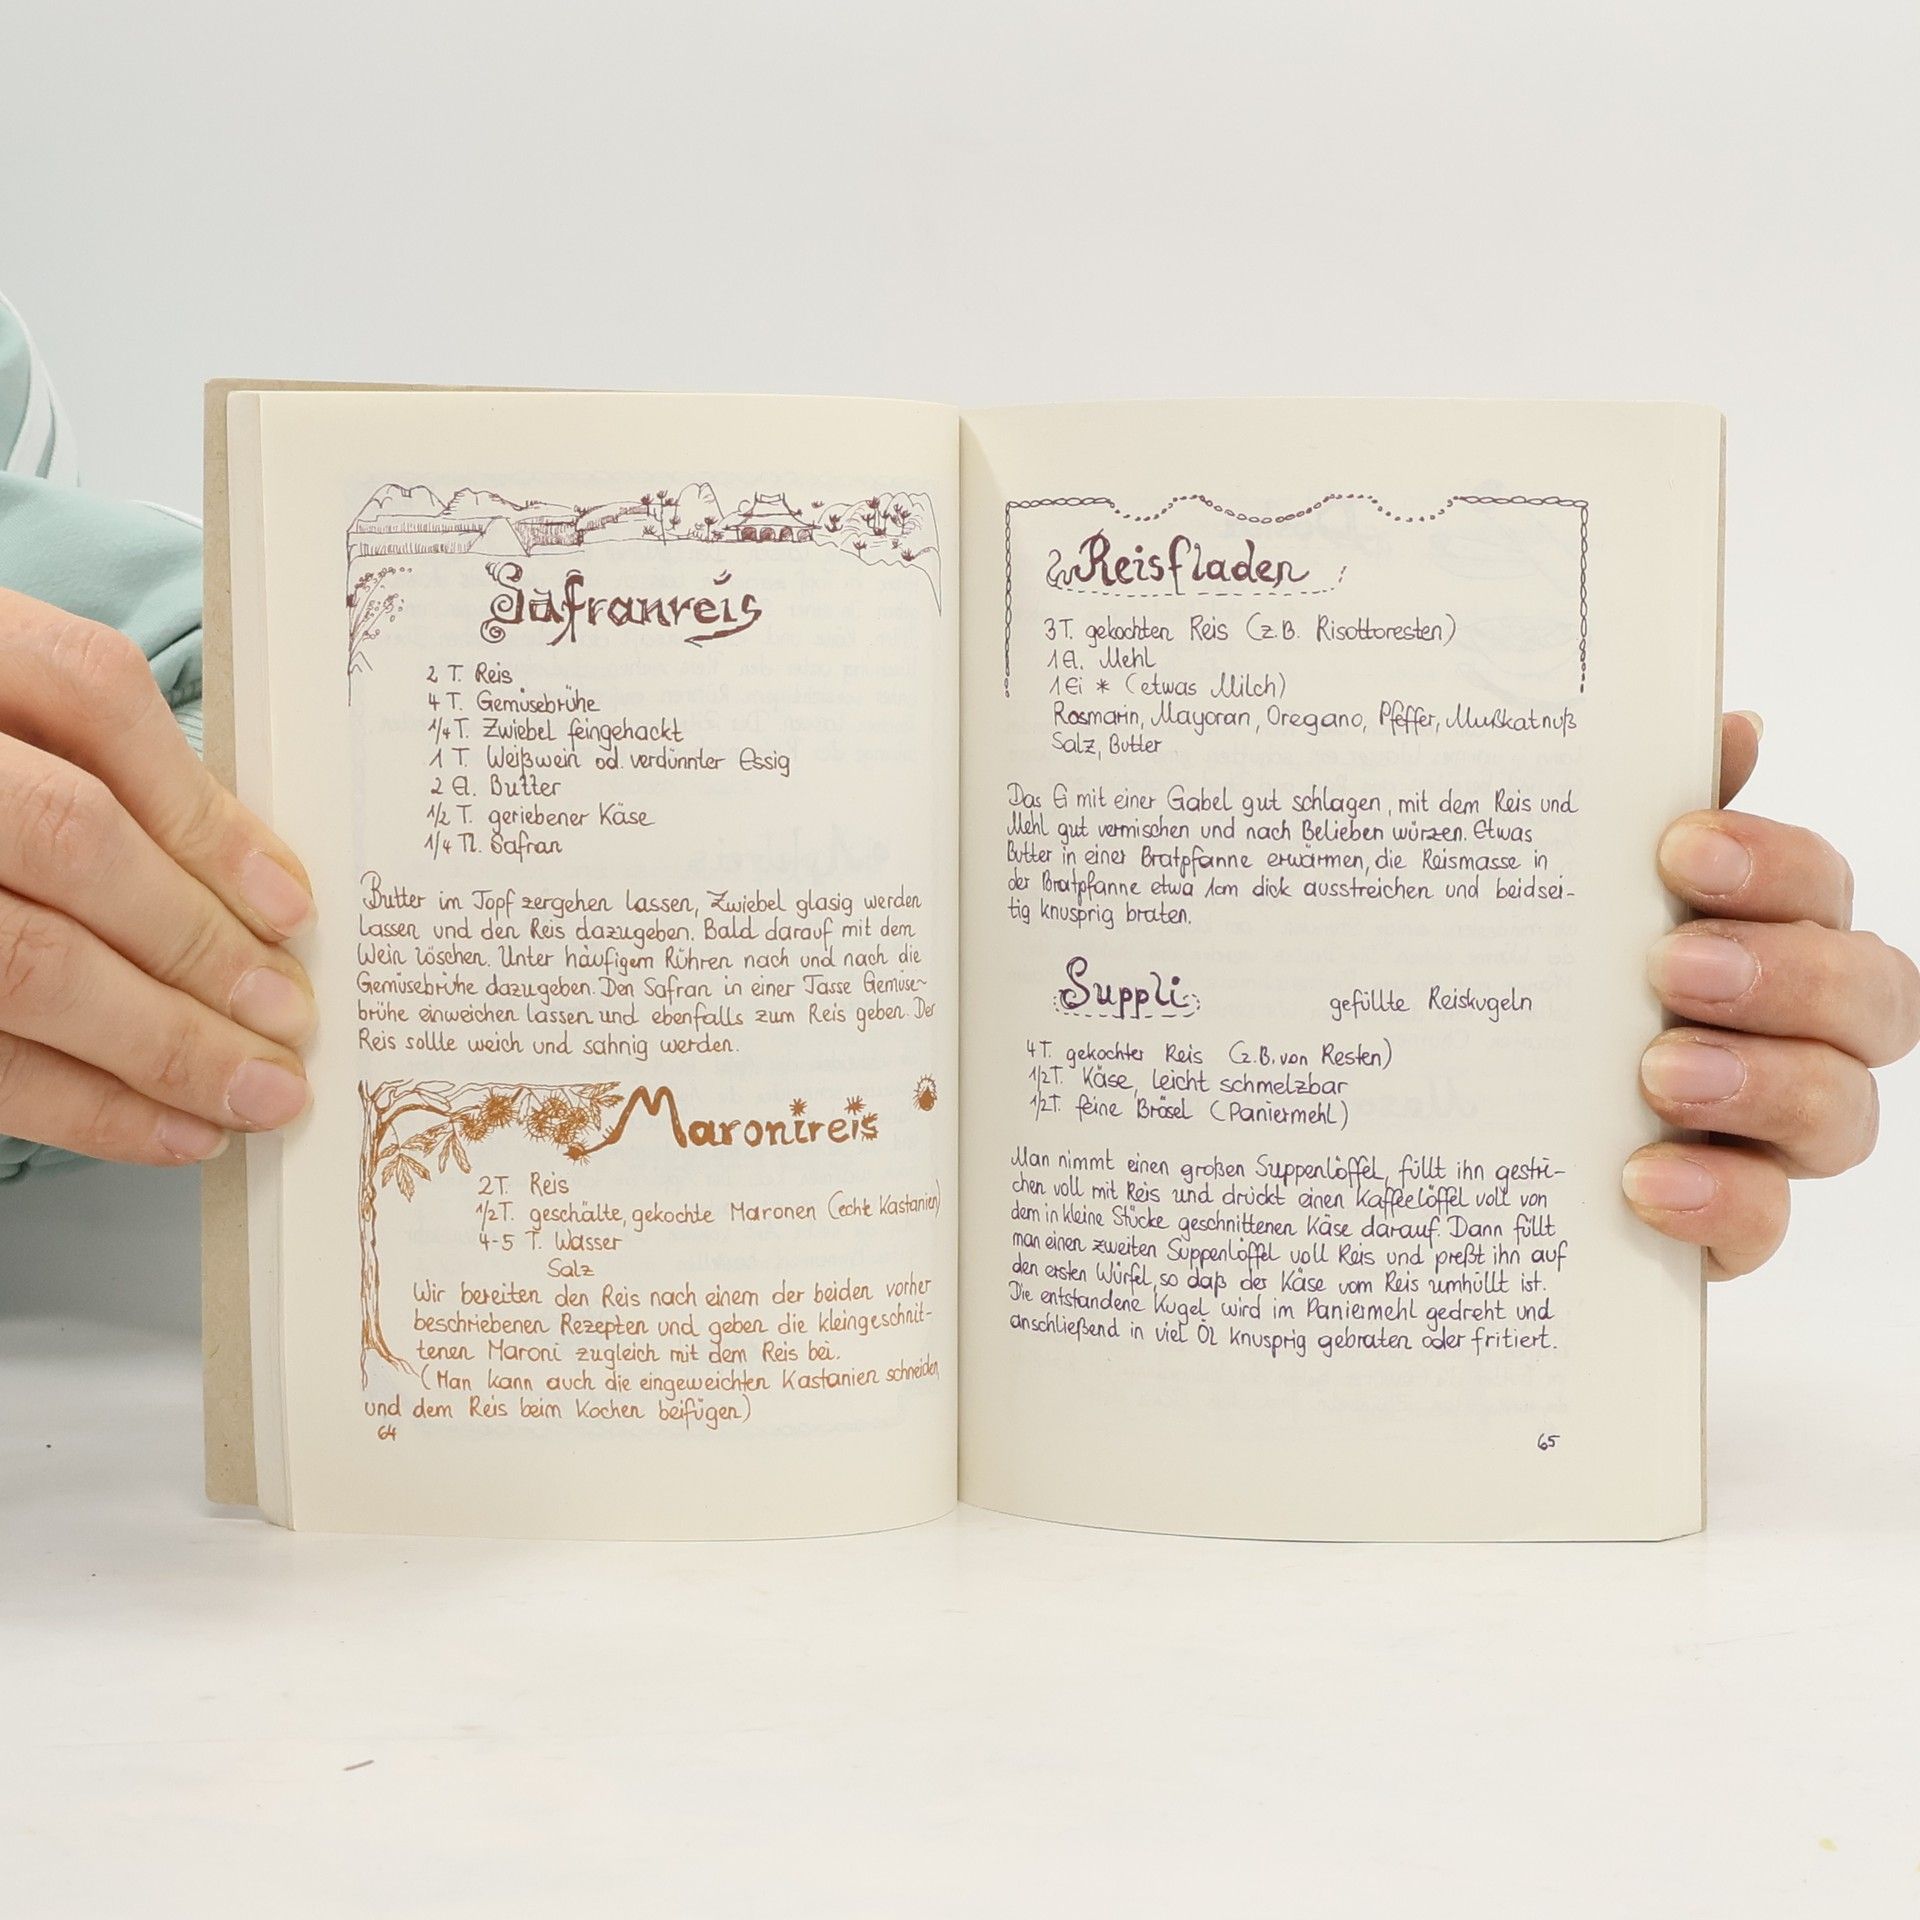 Safranreis
2 T. Reis
4 T. Gemüsebrühe
1/4 T. Zwiebel feingehackt
1 T. Weißwein od. verdünnter Essig
2 El. Butter
1/2 T. geriebener Käse
1/4 Tl. Safran
Butter im Topf zergehen lassen, Zwiebel glasig werden
lassen und den Reis dazugeben. Bald darauf mit dem
Wein löschen. Unter häufigem Rühren nach und nach die
Gemüsebrühe dazugeben. Den Safran in einer Tasse Gemüse~
brühe einweichen lassen und ebenfalls zum Reis geben. Der
Reis sollte weich und sahnig werden.
Maronireis
2T. Reis
1/2T. geschälte, gekochte Maronen (echte Kastanien)
4-5 T. Wasser
Salz
Wir bereiten den Reis nach einem der beiden vorher
beschriebenen Rezepten und geben die kleingeschnit-
tenen Maroni zugleich mit dem Reis bei.
(Man kann auch die eingeweichten Kastanien schneiden
und dem Reis beim Kochen beifügen)
64
Reisfladen
3T. gekochten Reis (z.B. Risottoresten)
1 El. Mehl
1 Ei * (etwas Milch)
Rosmarin, Mayoran, Oregano, Pfeffer, Mußkatnuß
Salz, Butter
Das Ei mit einer Gabel gut schlagen, mit dem Reis und
Mehl gut vermischen und nach Belieben würzen. Etwas
Butter in einer Bratpfanne erwärmen, die Reismasse in
der Bratpfanne etwa 1cm dick ausstreichen und beidsei-
tig knusprig braten.
Suppli gefüllte Reiskugeln
4T. gekochter Reis (z.B. von Resten)
1/2T. Käse, leicht schmelzbar
1/2T. feine Brösel (Paniermehl)
Man nimmt einen großen Suppenlöffel, füllt ihn gestri-
chen voll mit Reis und drückt einen Kaffeelöffel voll von
dem in kleine Stücke geschnittenen Käse darauf. Dann füllt
man einen zweiten Suppenlöffel voll Reis und preßt ihn auf
den ersten Würfel, so daß der Käse vom Reis umhüllt ist.
Die entstandene Kugel wird im Paniermehl gedreht und
anschließend in viel Öl knusprig gebraten oder fritiert.
65